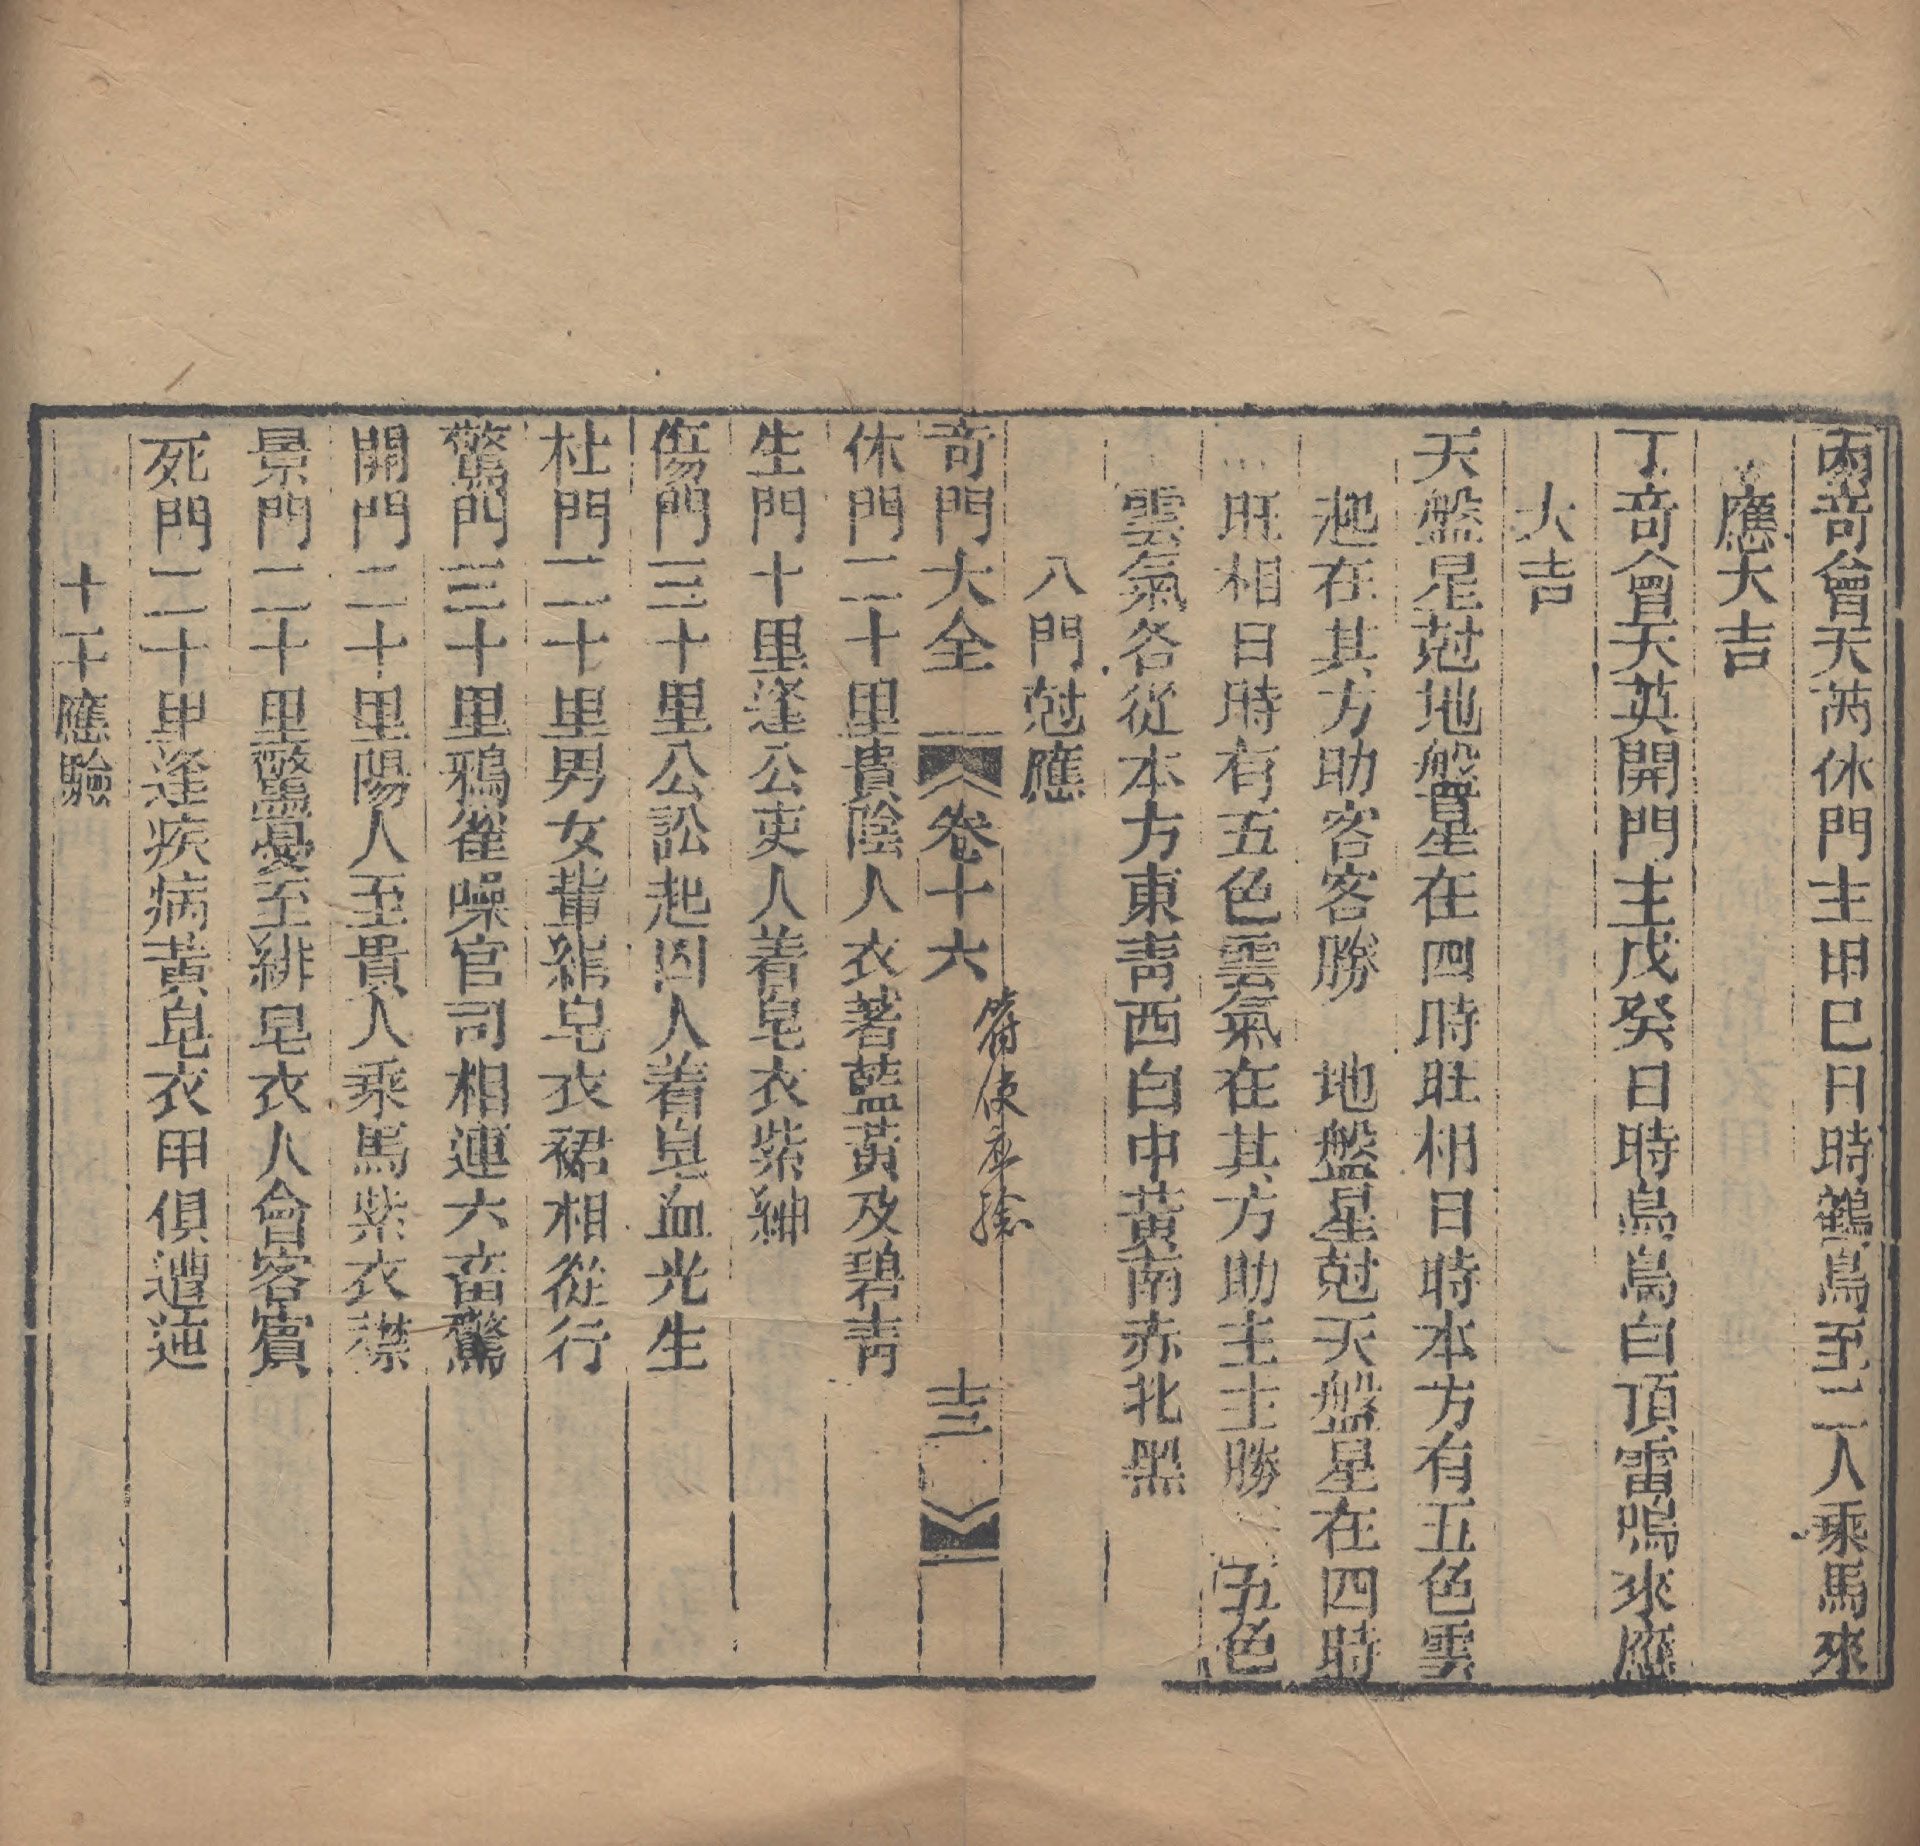 丙竒會天芮休門主甲巳日時鶴鳥至二人乘馬來
應大吉
丁竒會天英開門主戊癸日時烏鳥白頂雷鳴來應
大吉
天盤星尅地盤星在四時旺相日時本方有五色雲
起在其方助客客勝　地盤星尅天盤星在四時
旺相日時有五色雲氣在其方助主主勝　五色
雲氣各從本方東青西白中黃南赤北黑
八門尅應
竒門大全　卷十六　十三
符使
休門二十里貴陰人衣著藍黃及碧青
生門十里逢公吏人着皂衣紫紳
傷門三十里公訟起凶人着皂血光生
杜門二十里男女輩緋皂衣裙相從行
驚門三十里鴉雀噪官司相連六畜驚
開門二十里陽人至貴人乘馬紫衣襟
景門二十里驚憂至緋皂衣人會客賓
死門二十里逢疾病黃皂衣甲俱遭迍
十干應驗